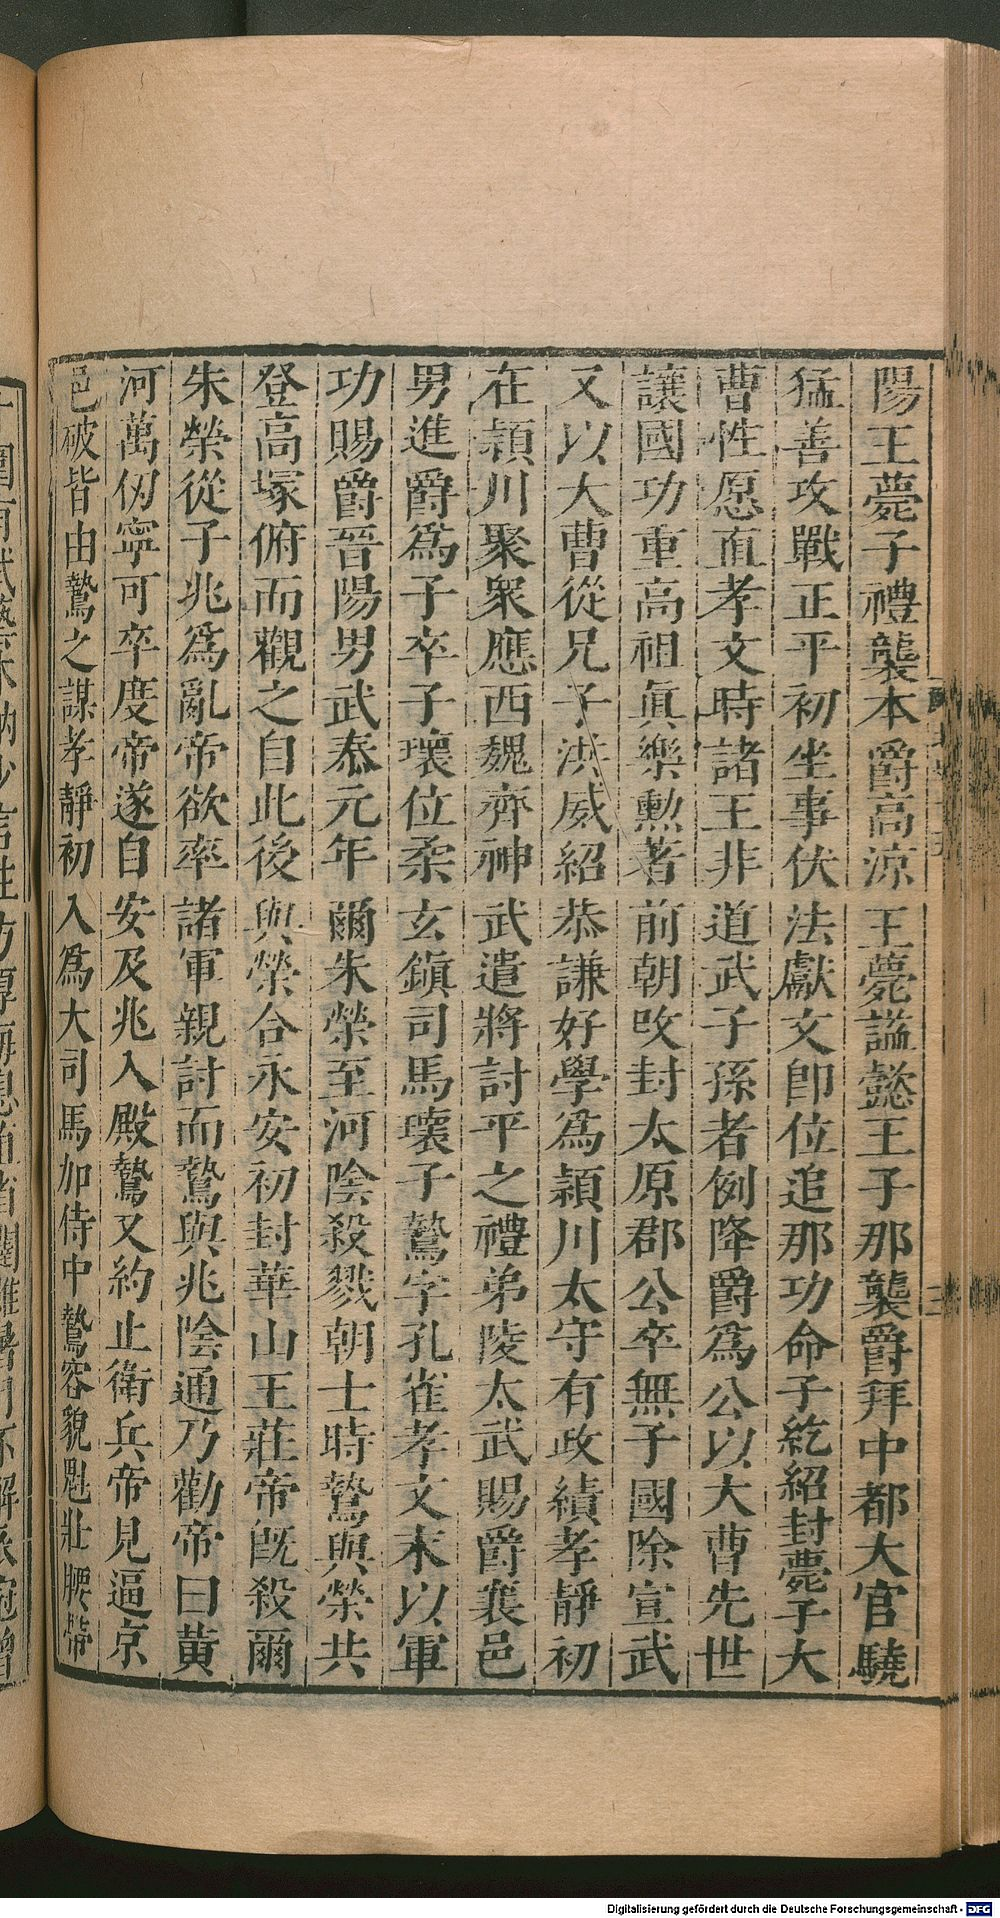 陽王薨子禮襲本爵高涼王薨諡懿王子那襲爵拜中都大官驍
猛善攻戰正平初坐事伏法獻文卽位追那功命子紇紹封薨子大
曹性愿直孝文時諸王非道武子孫者例降爵爲公以大曹先世
讓國功重高祖眞樂勲著前朝改封太原郡公卒無子國除宣武
又以大曹從兄子洪威紹恭謙好學爲潁川太守有政績孝靜初
在潁川聚衆應西魏齊神武遣將討平之禮弟陵太武賜爵襄邑
男進爵爲子卒子瓌位柔玄鎭司馬瓌子鷙字孔雀孝文末以軍
功賜爵晉陽男武泰元年爾朱榮至河陰殺戮朝士時鷙與榮共
登高塚俯而觀之自此後與榮合永安初封華山王莊帝旣殺爾
朱榮從子兆爲亂帝欲率諸軍親討而鷙與兆陰通乃勸帝曰黃
河萬仞寧可卒度帝遂自安及兆入殿鷙又約止衛兵帝見逼京
邑破皆由鷙之謀孝靜初入爲大司馬加侍中鷙容貌魁壯腰帶
Digitalisierung gefördert durch die Deutsche Forschungsgemeinschaft - DFG